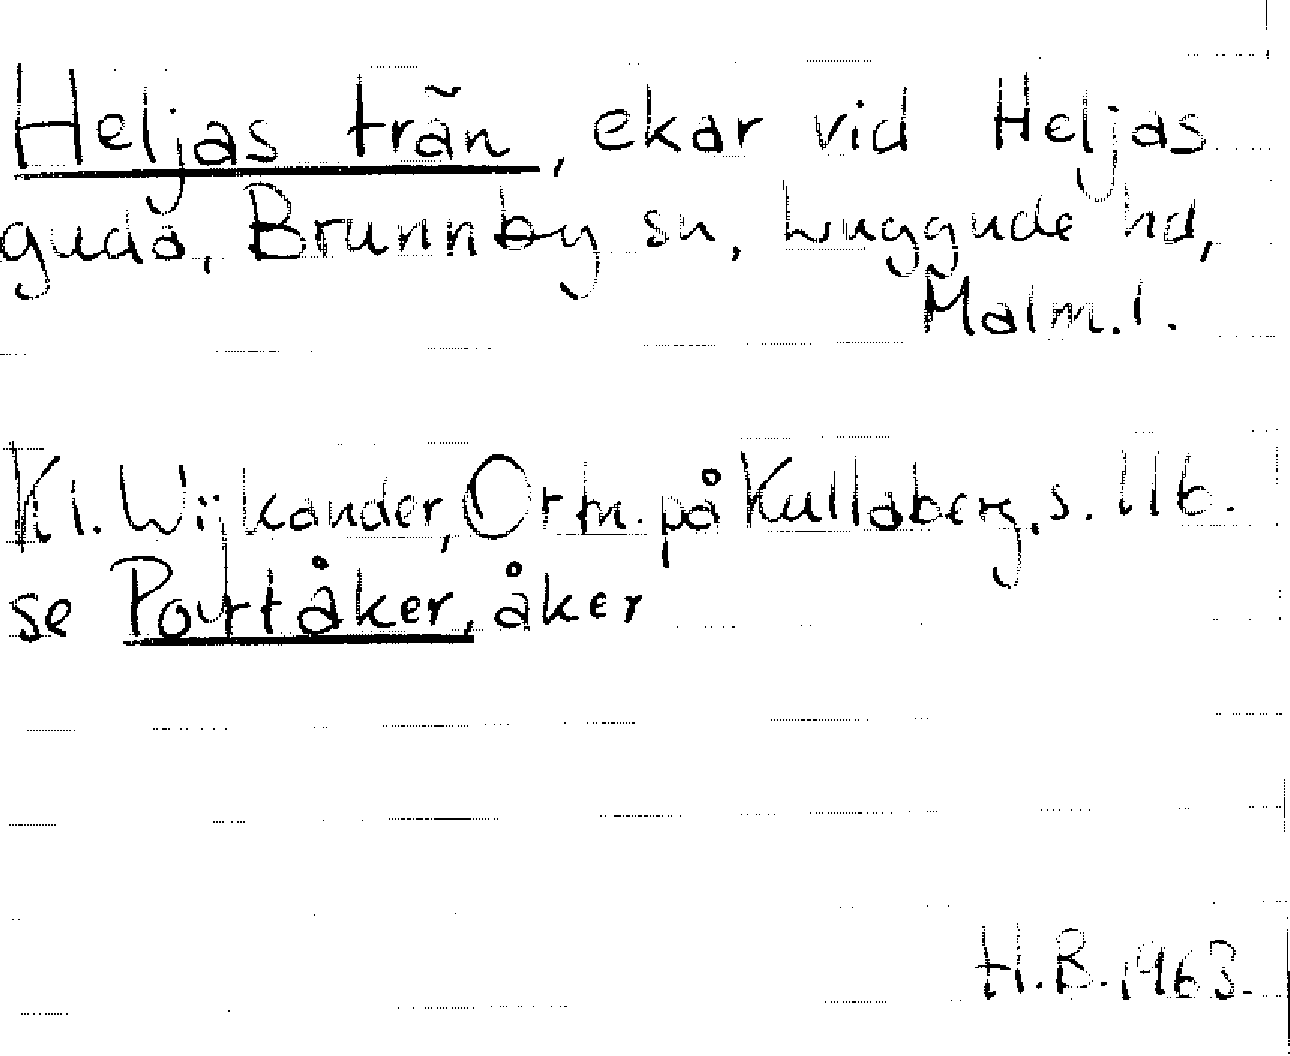 Heljas trän, ekar vid Heljas
guda, Brunnby sn, Luggude hd,
Malm.l.
Kl. Wijkander, Ortn. på Kullaberg, s. 116.
se Portåker, åker
H.B. 1963.